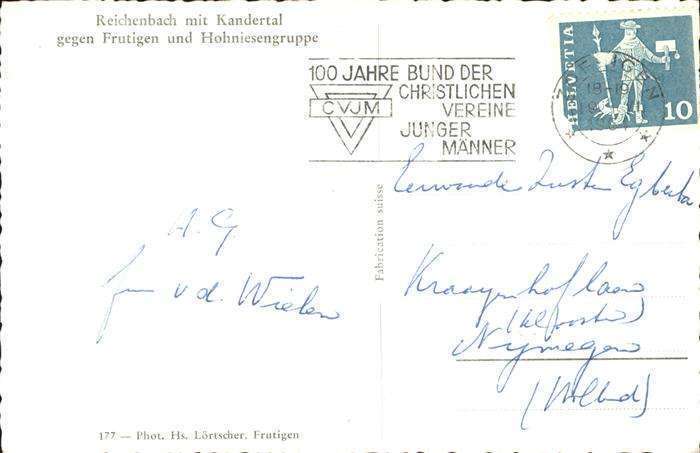 Reichenbach mit Kandertal
gegen Frutigen und Hohniesengruppe
100 JAHRE BUND DER
CHRISTLICHEN
VEREINE
JUNGER
MÄNNER
CVJM
HELVETIA
10
18-19
Fabrication suisse
Eerwaarde Zuster Egberta
Kraayenhoflaan
(Klooster)
Nijmegen
(Holland)
A. G.
v d. Wielen
177 — Phot. Hs. Lörtscher, Frutigen